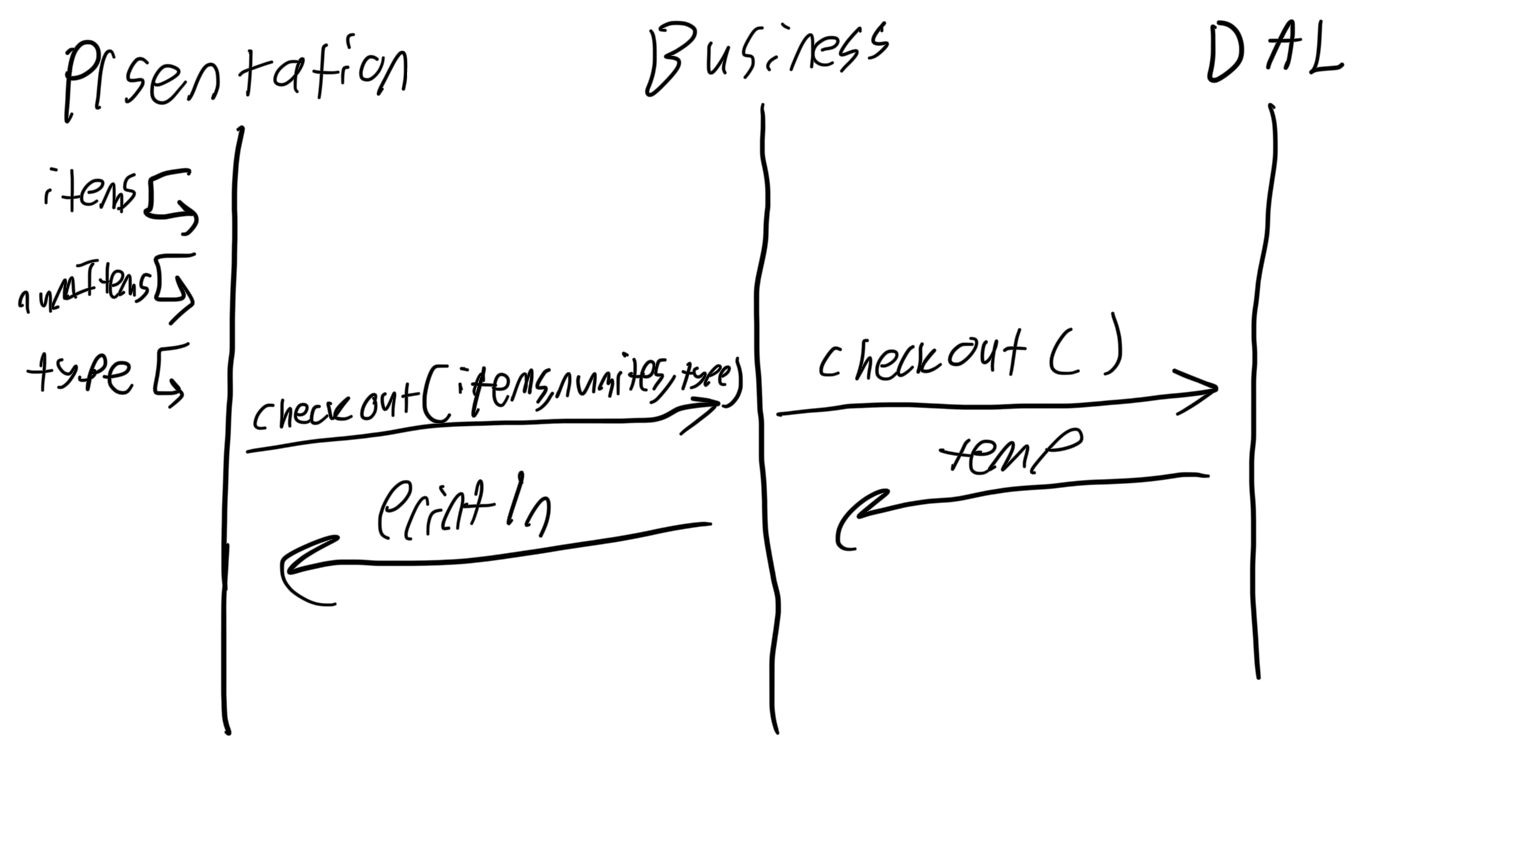 Prsentation
Business
DAL
items
numItems
type
checkout(items,numites,type)
checkout()
temp
println